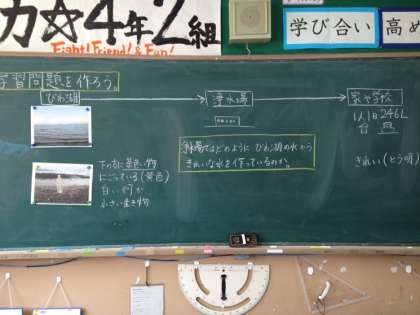 カ☆4年2組
Fight! Friend! & Fun!
学び合い
高め
学習問題を作ろう。
びわ湖
浄水場
家や学校
1人1日246L
浄水場ではどのように びわ湖の水から
きれいな水を作っているのか。
きれい(とう明)
下の方に黄色い物
にごっている(黄色)
白い何か
小さい生き物